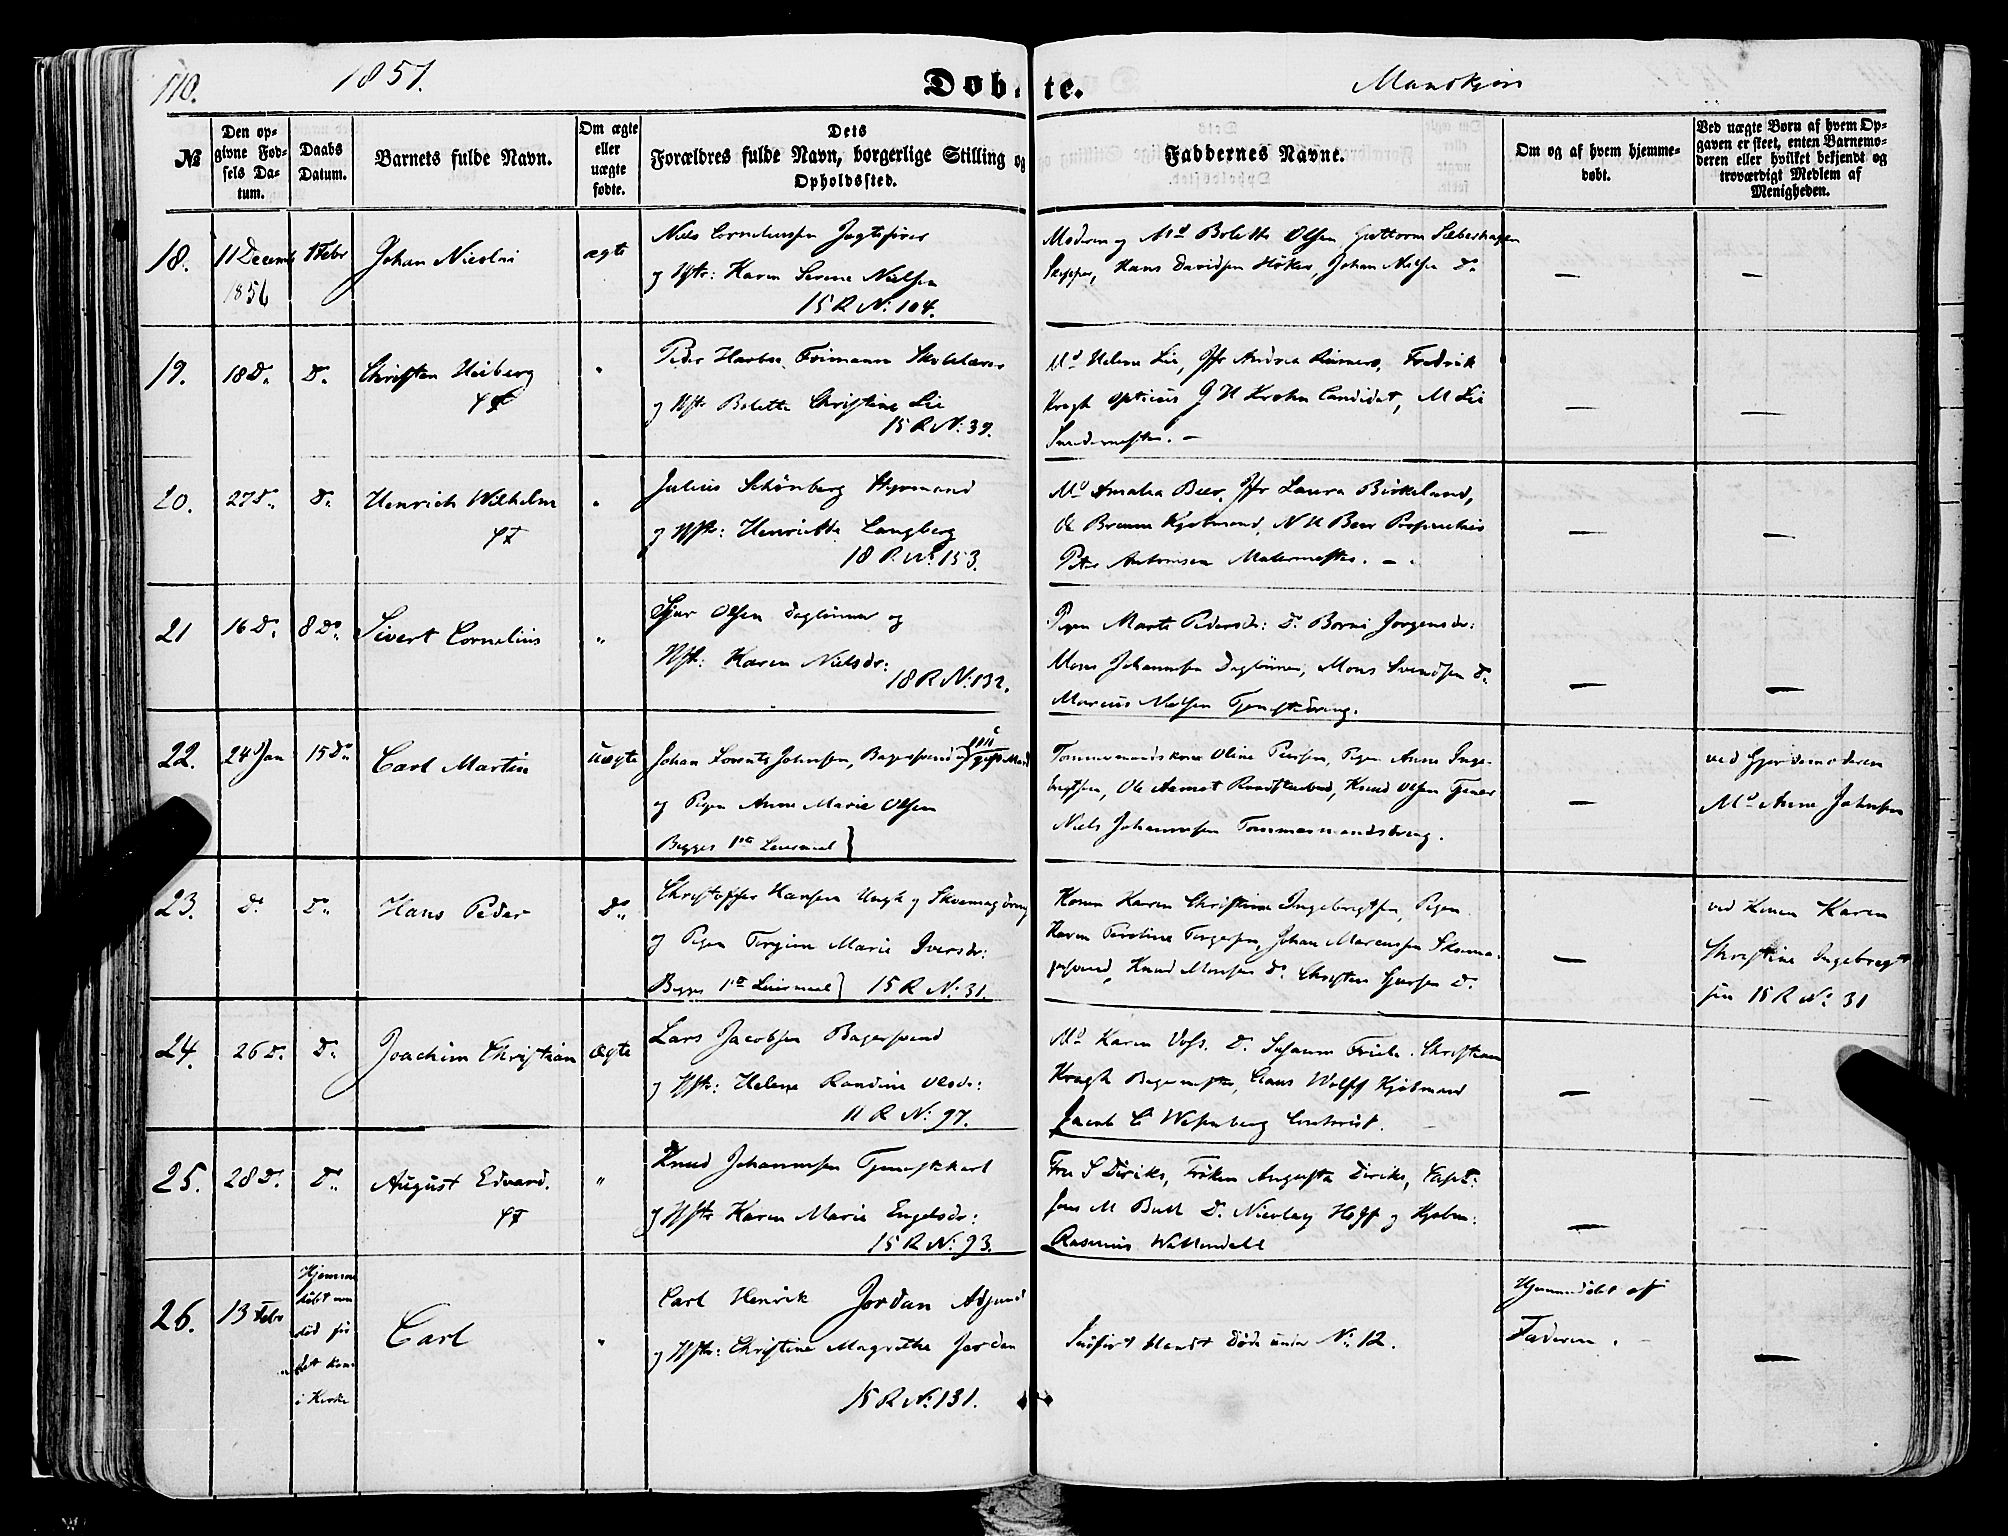 110.
1851.
Døbte.
Mandkjøn
№
Den op-
givne Fød-
sels Da-
tum.
Daabs
Datum.
Barnets fulde Navn.
Om ægte
eller
uægte
fødte.
Dets
Forældres fulde Navn, borgerlige Stilling og
Opholdssted.
Faddernes Navne.
Om og af hvem hjemme-
døbt.
Ved uægte Børn af hvem Op-
gaven er skeet, enten Barnemo-
deren eller hvilket bekjendt og
troværdigt Medlem af
Menigheden.
18.
11 Decemb
1850
1 Febr
Johan Nicolai
ægte
Niels Corneliussen Jagtefører
og Hstr: Karen Serene Nielsen
15 R N: 104.
Moderen og Md Bolette Olsen,
Skipper, Hans Davidsen Høker, Johan Nielsen Do
—
—
19.
18 D.
D.
Christen Heiberg
Peder Frimann Skolelærer
og Hstr Bolette Christine Lie
15 R N: 39.
Md Helene Lie, Jfr Andrea Reimers, Fredrik
Kragh Opticus G H Krohn Candidat, M Lie
—
—
20.
27 D.
D.
Henrich Wilhelm
Julius Schönberg Styrmand
og Hstr: Henriette Langberg
18 R N: 153.
Md Amalia Beer, Jfr Laura Birkeland,
Ole Kjøbmand, N H Beer
Peter Antonisen Malermester. –
—
—
21
16 D.
8 D.
Sivert Cornelius
"
Sjur Olsen Dagleiner og
Hstr: Karen Nielsdr:
18 R N: 132.
Pigen Marte Pedersdr: D. Jørgensdr:
Mons Johannesen Dagleiner, Mons Svendsen D.
Marcus Nielsen Tjenestedreng.
—
—
22.
24 Jan
15 D.
Carl Martin
uægte
Johan Lorentz Johnsen, Bagersvend gift Mand
og Pigen Anne Marie Olsen
Begges 1ste Leiermaal }
Tømmermandskone Oline Peersen, Pigen Anne Inge-
brigtsen, Ole Knud Olsen Tjener
Niels Johannesen Tømmermandsdreng.
—
ved Gjordemoderen
Md Anne Johnsen
23.
D.
D.
Hans Peder
D.
Christopher Hansen Ungk og Skoemag dreng
og Pigen Torgine Marie Iversdr:
Begges 1ste Leiermaal } 15 R N: 31.
Konen Karen Christine Ingebrigtsen, Pigen
Karen Torgersen, Johan Marcussen Skoma-
gersvend, Knud Monsen D. Christen D.
—
ved Konen Karen
Christine Ingebrigt
sen 15 R N: 31
24.
26 D.
D.
Joachim Christian
Ægte
Lars Jacobsen Bagersvend
og Hstr: Helene Randine Olsdr:
11 R N: 97.
Md Karen Voss. D. Susanne Friele. Christian
Kragh Bagermester, Claus Wolff Kjøbmand
Jacob C Wesenberg Contorist.
—
—
25.
28 D.
D.
August Edvard.
"
Knud Johannesen Tjenestekarl
og Hstr Karen Marie Engelsdr:
15 R N: 93.
Fru S Diriks, Frøken Augusta Diriks, Capt:
Jens M Bull D. Nicolay og Kjøbm:
Rasmus Wallendahl
—
—
26.
13 Febr
Hjemme
døbt men
død før
det kom
i Kirke
Carl
"
Carl Henrik Jordan
og Hstr: Christine Magrethe Jordan
15 R N: 131.
Indført blandt Døde under N: 12.
Hjemmedøbt af
Faderen.
—